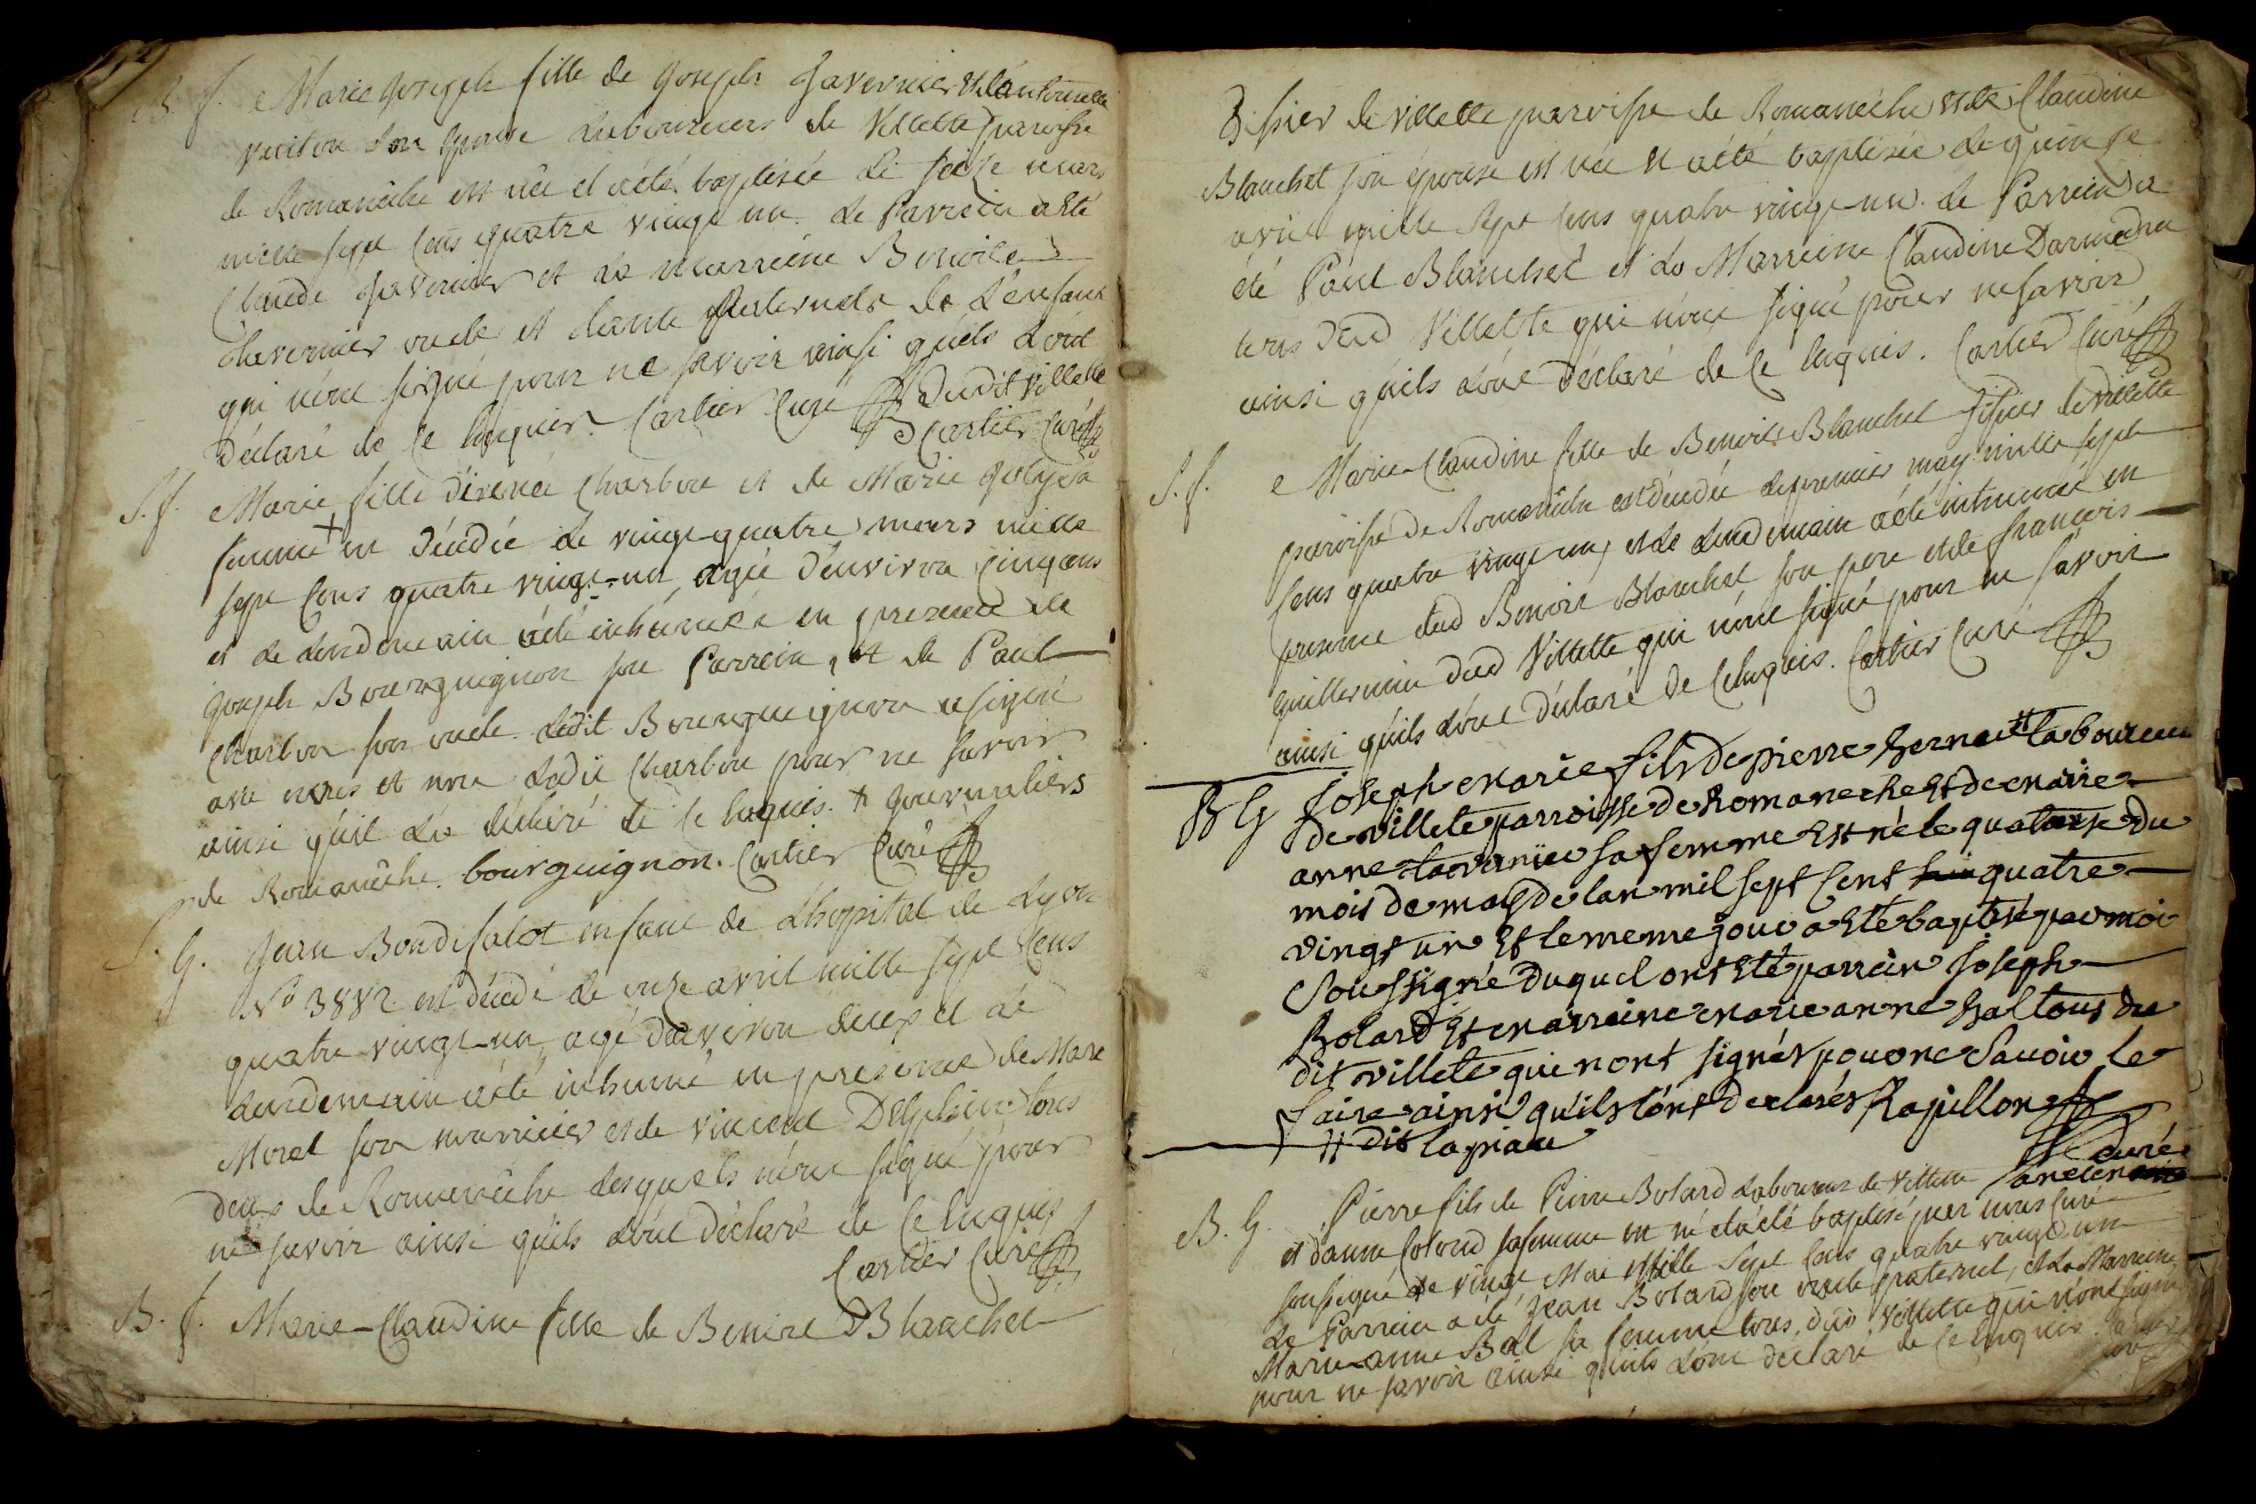 B. f. Marie Joseph fille de Joseph Tavernier et d'antoinette
son épouse laboureurs de Villette parroisse
de Romanêche est née et a été baptisée le seize mars
mille sept cens quatre vingt un. le Parrein a été
Claude Tavernier et la marreine Benoite
Tavernier oncle et tante paternels de l'enfant
qui n'ont signé pour ne savoir ainsi qu'ils l'ont
déclaré de ce enquis. Cartier Curé dudit Villette
Cartier Curé
S. f. Marie fille d'irenée Charbon et de Marie
femme + est décédée le vingt quatre mars mille
sept cens quatre vingt-un, agée d'environ cinq ans
et le lendemain a été inhumée en presence de
Joseph Bourguignon son Parrein, et de Paul
Charbon son oncle. ledit Bourguignon a signé
avec nous et non ledit Charbon pour ne savoir
ainsi qu'il l'a déclaré de ce enquis. + journaliers
de Romanêche. bourguignon. Cartier Curé
S. G. Jean Bondisalot enfant de L'hopital de Lyon
N° 3882. est décédé le onze avril mille sept cens
quatre vingt-un, agé d'environ deux et le
lendemain a été inhumé en presence de Marc
Morel son nourricier et de vincent Delphin tous
deux de Romanêche lesquels n'ont signé pour
ne savoir ainsi qu'ils l'ont déclaré de ce enquis
Cartier Curé
B. f. Marie-Claudine fille de Benoit Blanchet
Tissier de villette parroisse de Romanêche et de Claudine
Blanchet son épouse est née et a été baptisée le quinze
avril mille sept cens quatre vingt-un. le Parrein a
été Paul Blanchet et la Marreine Claudine
tous dud Villette qui n'ont signé pour ne savoir
ainsi qu'ils l'ont déclaré de ce enquis. Cartier Curé
S. f. Marie-Claudine fille de Benoit Blanchet Tissier de villette
parroisse de Romanêche est décédée le premier may mille sept
cens quatre vingt un, et le lendemain a été inhumée en
presence dud Benoit Blanchet son pere et de françois
Guillermin dud Villette qui n'ont signé pour ne savoir
ainsi qu'ils l'ont déclaré de ce enquis. Cartier Curé
B G Joseph marie fils de pierre # laboureur
de villete parroisse de Romaneche Et de marie
anne tavernier sa femme Est né le quatorse du
mois de may de lan mil sept Cent quatre
vingt un Et le meme jour a Eté baptisé par moi
Soussigné duquel ont Eté parrein Joseph
Bolard Et marreine marie anne Bal tous du
dit villete qui nont signés pour ne Savoir le
faire ainsi qu'ils lont declarés Rapillon
# dit curé
B. G. Pierre fils de Pierre Bolard Laboureur de Villette
et d'anne sa femme est né et a été baptisé par nous Curé
soussigné le vingt Mai Mille Sept Cens quatre vingt un
Le Parrein a été Jean Bolard son oncle paternel, et La Marreine
Marie-anne Bal sa femme tous dud. Villette qui n'ont signé
pour ne savoir ainsi qu'ils l'ont déclaré de ce enquis. Cartier
curé